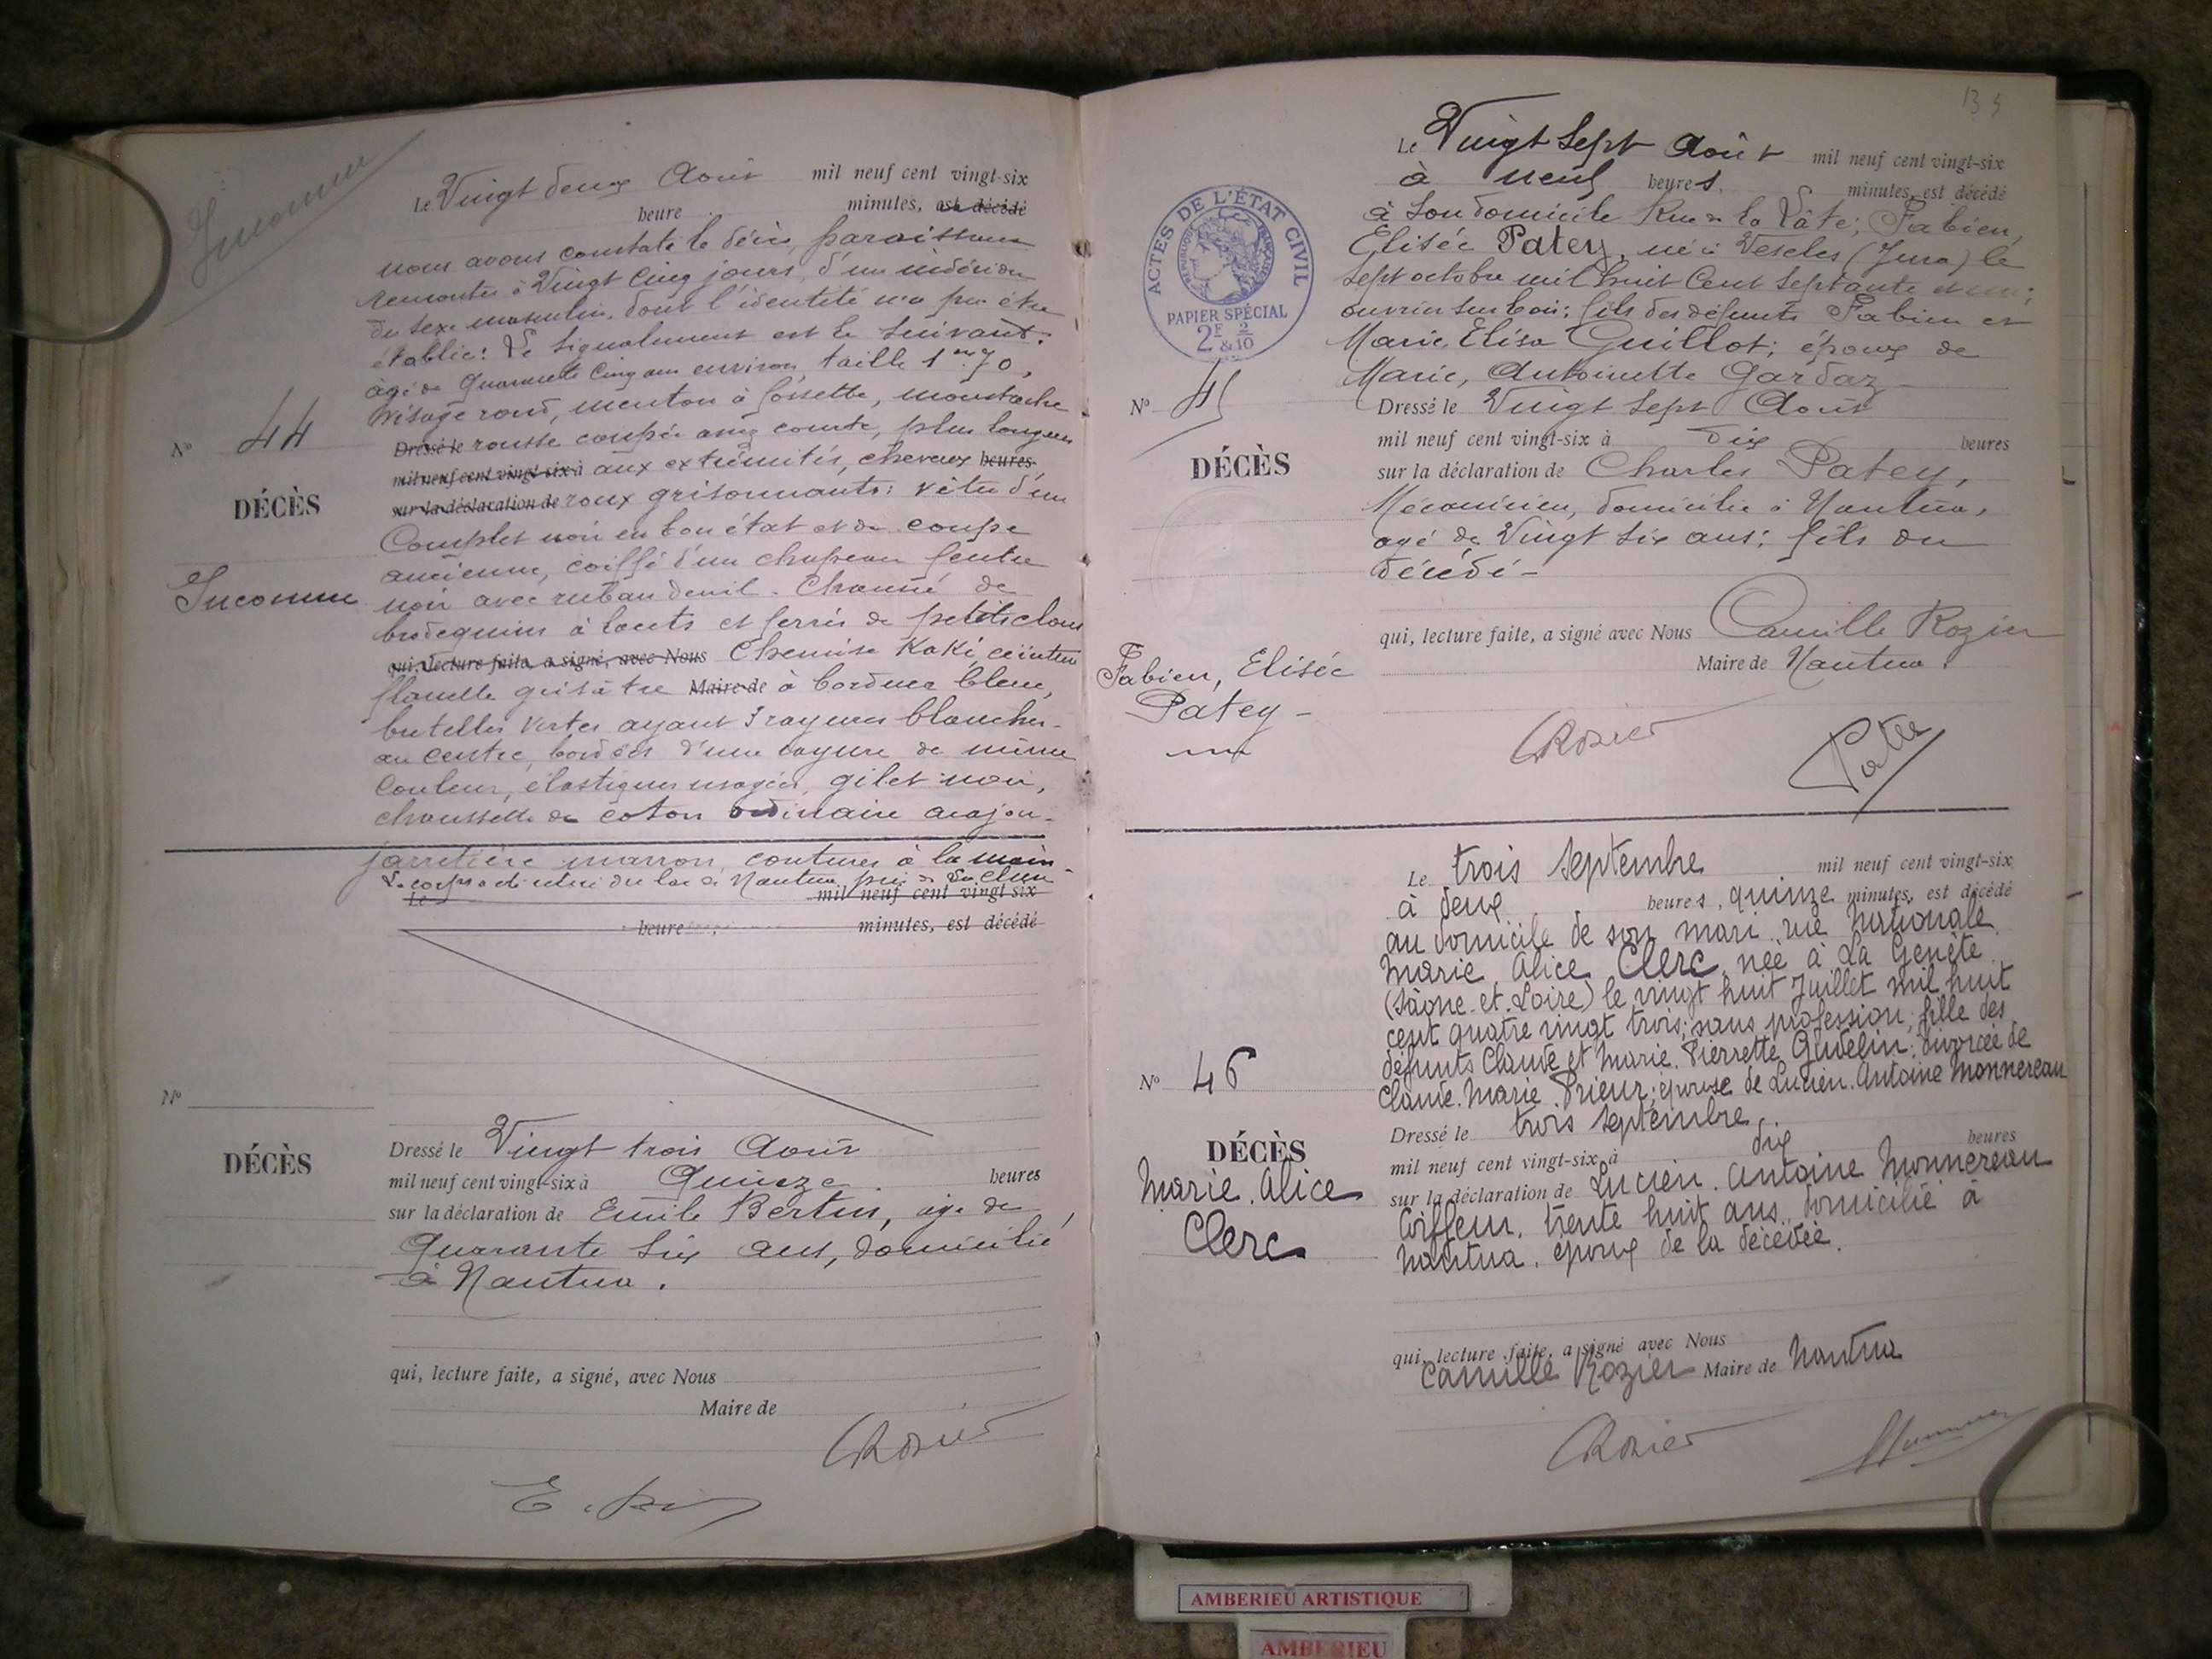 Inconnu
Le Vingt deux Août mil neuf cent vingt-six
heure minutes, est décédé
nous avons constaté le décès, paraissant
remonter à Vingt cinq jours, d'un individu
du sexe masculin, dont l'identité n'a pu être
établie: Le signalement est le suivant:
âgé de Quarante cinq ans environ, taille 1m70,
Visage rond, menton à fossette, moustache
N° 44
Dressé le rousse coupée assez courte, plus longue
mil neuf cent vingt-six à aux extrémités, cheveux heures
DÉCÈS
sur la déclaration de roux grisonnants: vêtu d'un
Complet noir en bon état et de coupe
ancienne, coiffé d'un chapeau feutre
Inconnu
noir avec ruban deuil. Chaussé de
brodequins à lacets et ferrés de petits clous
qui, lecture faite, a signé, avec Nous Chemise Kaki, ceinture
flanelle grisâtre Maire de à bordure bleue,
bretelles vertes ayant 3 rayures blanches
au centre, bordées d'une rayure de même
couleur, élastiques usagés, gilet noir,
chaussette de coton ordinaire
jarretière marron, coutures à la main
Le corps a été retiré du lac de Nantua
Le mil neuf cent vingt six
heure minutes, est décédé
N°
DÉCÈS
Dressé le Vingt trois Août
mil neuf cent vingt-six à Quinze heures
sur la déclaration de Emile Bertin, âgé de
Quarante six ans, domicilié
à Nantua.
qui, lecture faite, a signé, avec Nous
Maire de
CRozier
135
Le Vingt Sept Août mil neuf cent vingt-six
à neuf heures, minutes, est décédé
à son domicile Rue de la Pâte; Fabien,
Elisée Patey, né à Vescles (Jura) le
sept octobre mil huit Cent septante et un;
ouvrier sur bois; fils des défunts Fabien et
Marie Elisa Guillot; époux de
Marie, Antoinette Gardaz
ACTES DE L'ÉTAT CIVIL
RÉPUBLIQUE FRANÇAISE
PAPIER SPÉCIAL
2F & 2/10
N° 45
DÉCÈS
Dressé le Vingt Sept Août
mil neuf cent vingt-six à dix heures
sur la déclaration de Charles Patey,
Mécanicien, domicilié à Nantua,
agé de Vingt six ans; fils du
décédé -
qui, lecture faite, a signé avec Nous Camille Rozier
Maire de Nantua.
Fabien, Elisée
Patey -
CRozier
Patey
Le trois septembre mil neuf cent vingt-six
à deux heures, quinze minutes, est décédé
au domicile de son mari rue Nationale
Marie Alice Clerc, née à La Genête
(Saône-et-Loire) le vingt huit Juillet mil huit
cent quatre vingt trois; sans profession; fille des
défunts Claude et Marie Pierrette Gudelin; divorcée de
Claude Marie Prieur; épouse de Lucien Antoine Monnereau
N° 46
DÉCÈS
Marie Alice
Clerc
Dressé le trois septembre
mil neuf cent vingt-six à dix heures
sur la déclaration de Lucien Antoine Monnereau
Coiffeur, trente huit ans, domicilié à
Nantua, époux de la décédée.
qui, lecture faite, a signé avec Nous
Camille Rozier Maire de Nantua
CRozier
AMBERIEU ARTISTIQUE
AMBERIEU